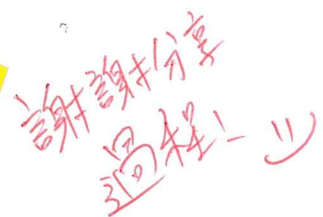 謝謝分享
過程! :)